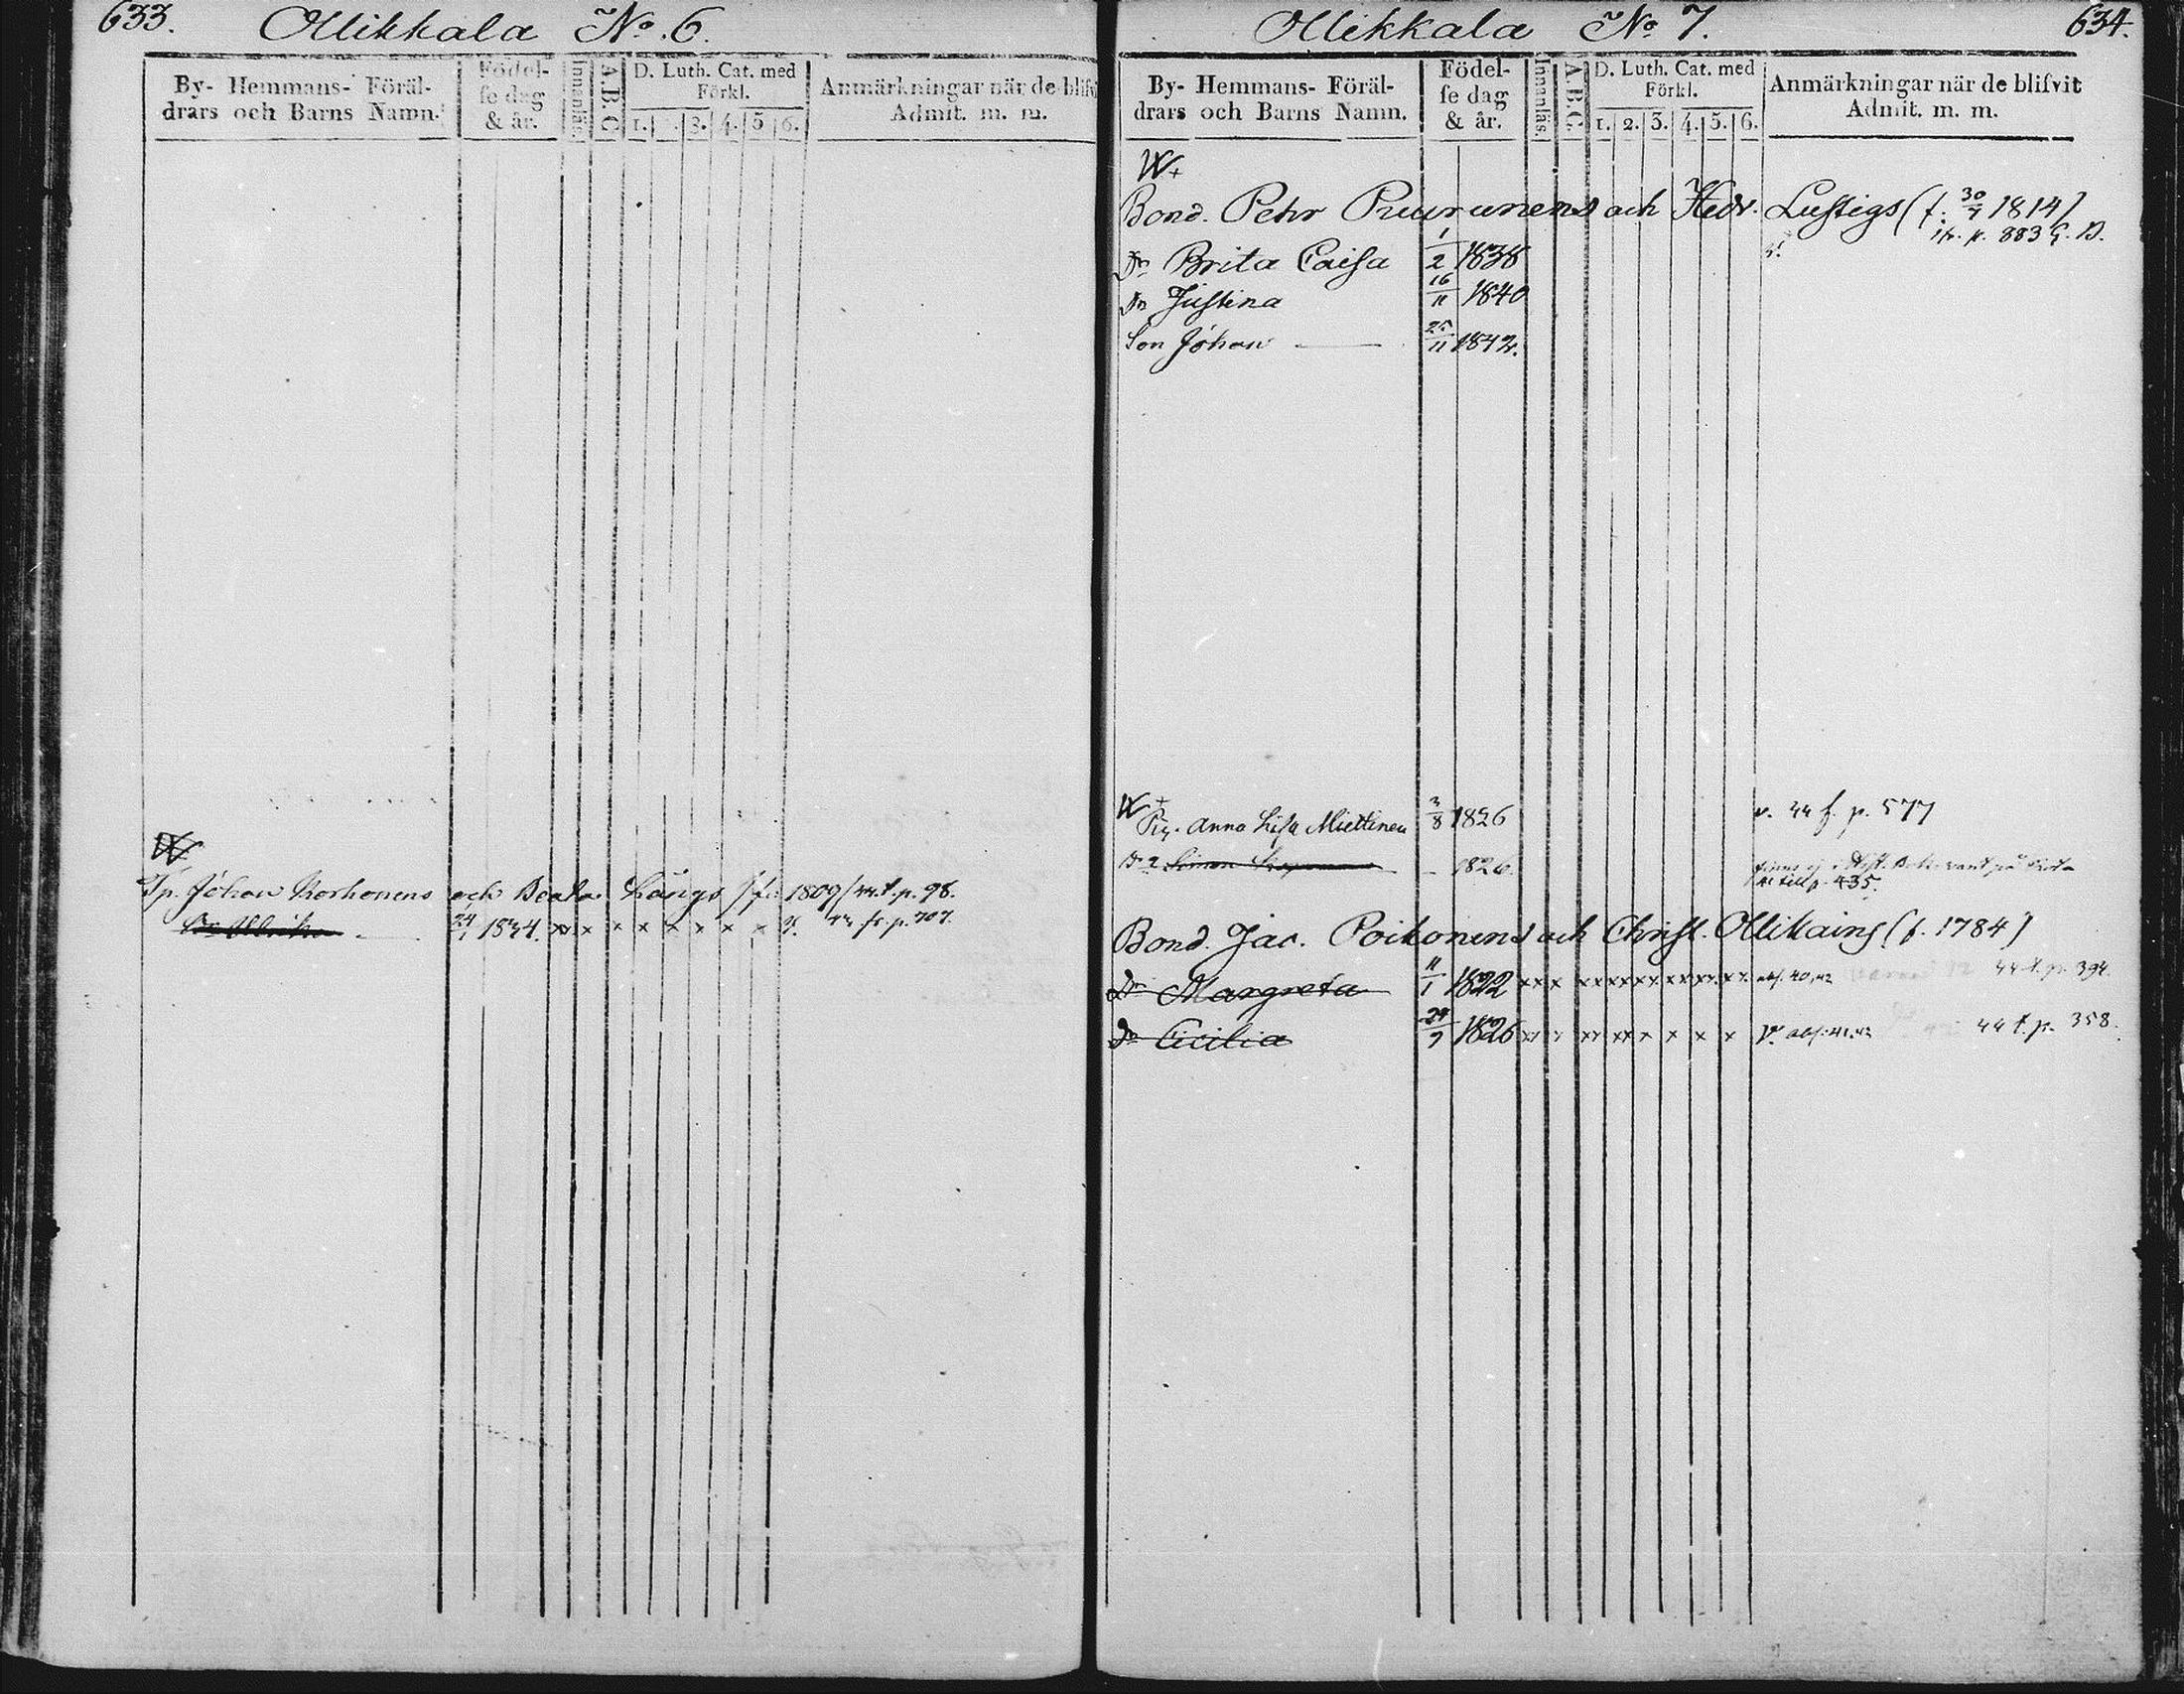 633. Ollikkala No. 6.
By- Hemmans- Föräl-
drars och Barns Namn.
Födel-
se dag
& år.
Innanläs.
A.B.C
D. Luth. Cat. med
Förkl.
1. 3. 4. 5 6.
Anmärkningar när de blifv
Admit. m. m.
W
Johan Korhonens och Beata Långs 1809 p. 98.
24 1834. x x x x x x x x fr. p. 707.
Ollikkala No 7. 634.
By- Hemmans- Föräl-
drars och Barns Namn.
Födel-
se dag
& år.
Innanläs.
A.B.C.
D. Luth. Cat. med
Förkl.
1. 2. 3. 4. 5. 6.
Anmärkningar när de blifvit
Admit. m. m.
W+
Bond. Pehr Puurunens och Hedv. Lustigs (f. 30/7 1814)
p. 883 G. B.
Dr Brita Caisa 1/2 1838
Dr Justina 16/11 1840
Son Johan 25/11 1842.
W+
Pig. Anna Lisa Miettinen 3/8 1826 v. 44 f. p. 577
till p. 435.
Bond. Jac. Poikonens och Christ. Ollikains (f. 1784)
Dr Margreta 11/1 1822 44 f. p. 394.
Dr Cicilia 24/7 1826 44 f. p. 358.